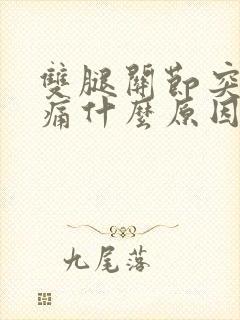 雙腿關節突
痛什麼原因
九尾落